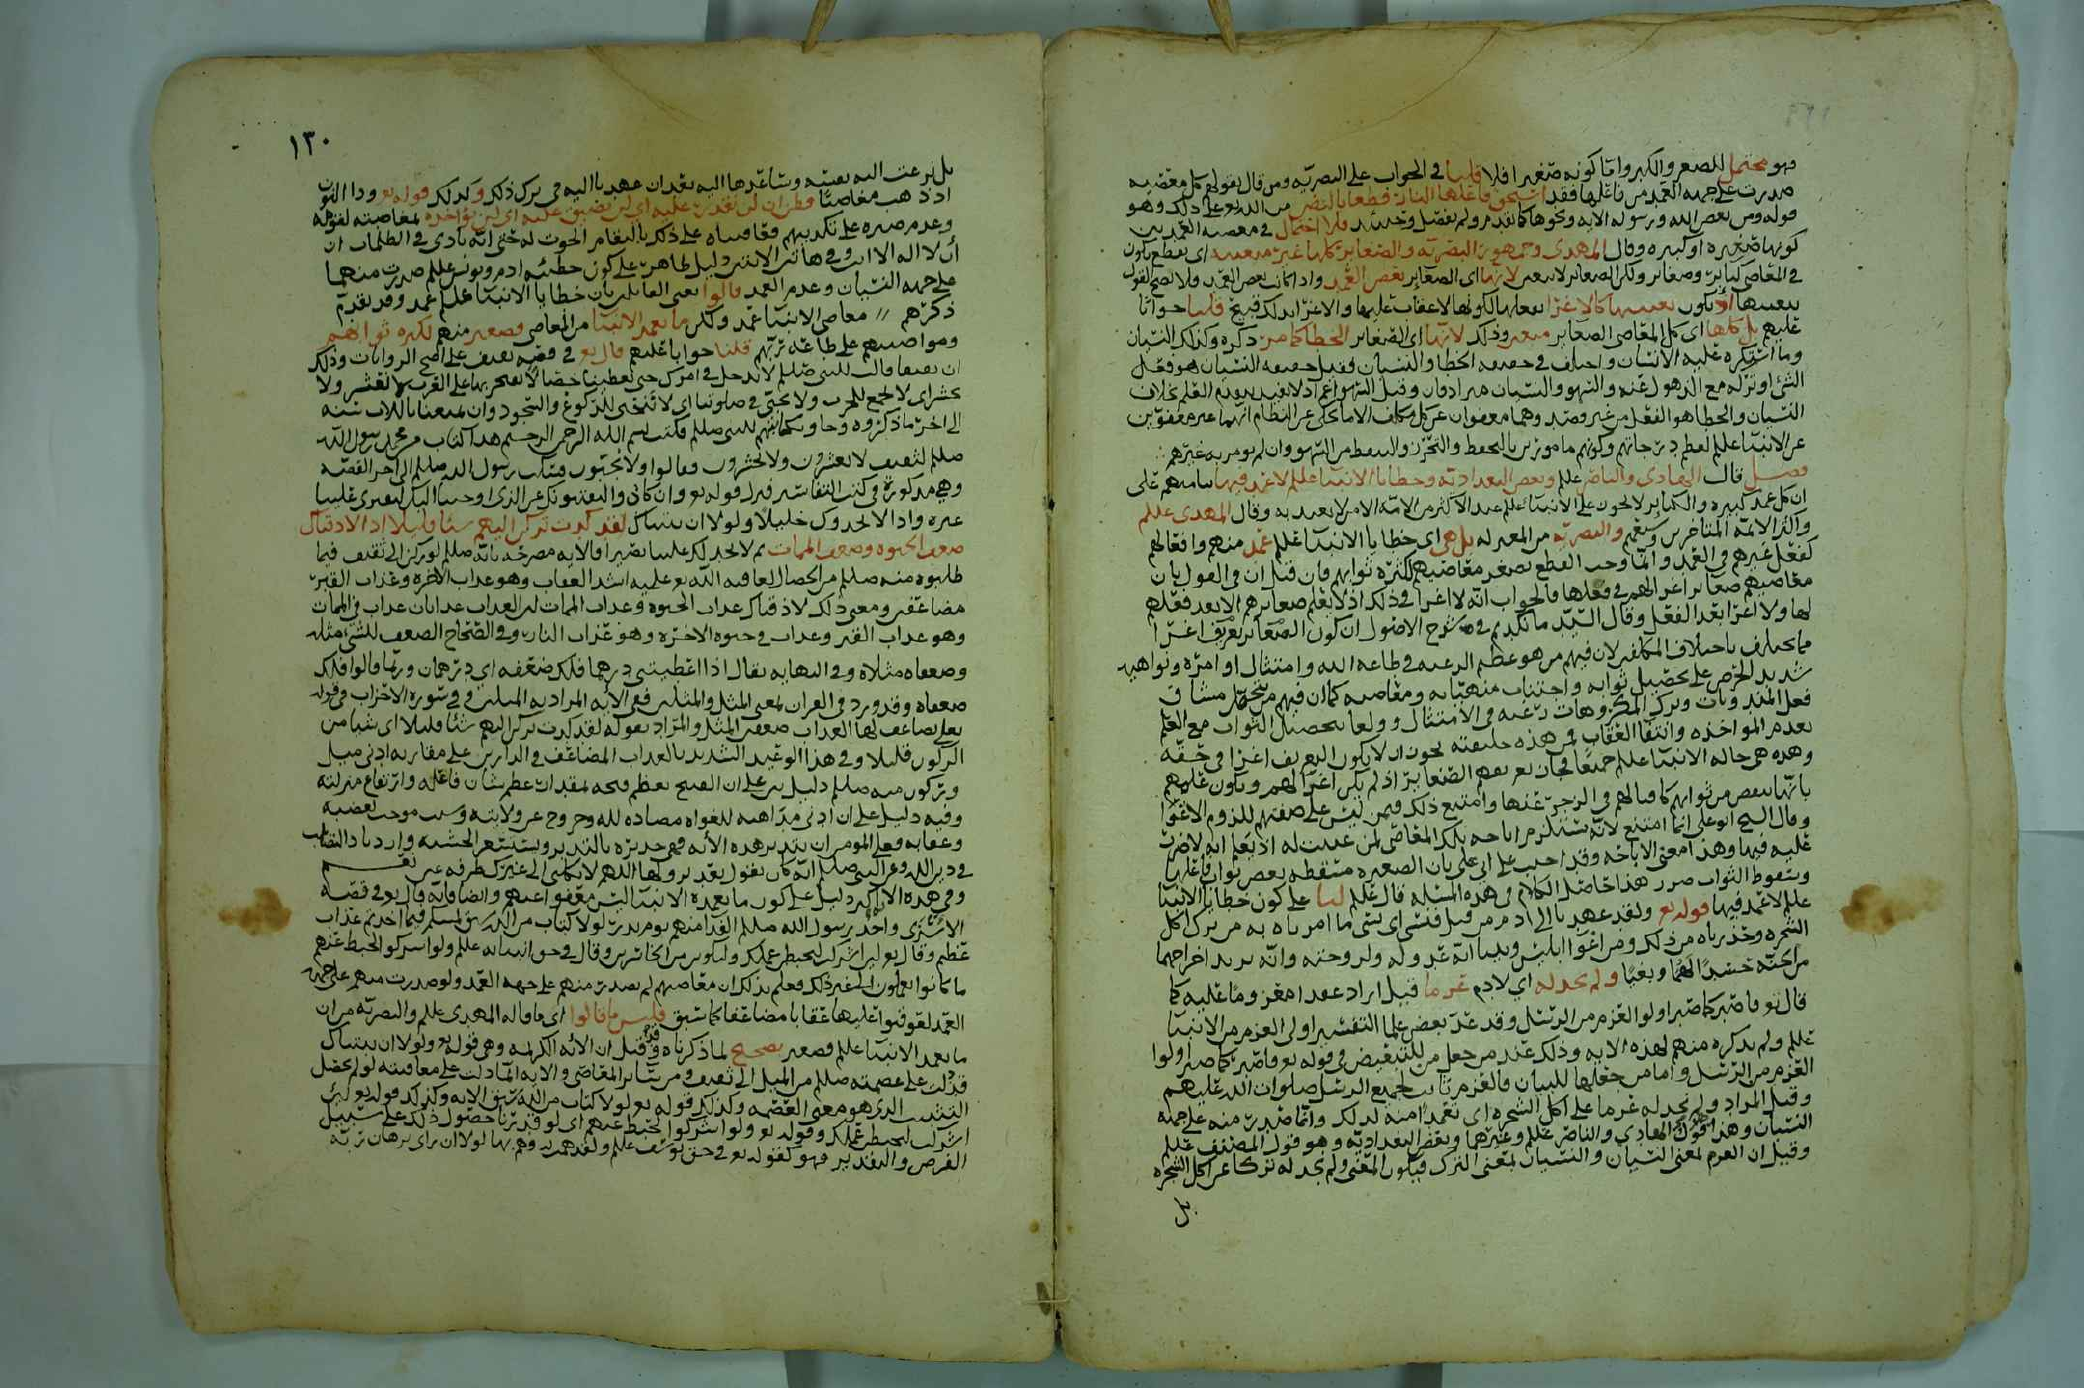 فهو محتمل للصغر والكبر واما كونه صغيرا فلا قلنا في الجواب على البصرية ومن قال بقولهم كل معصية
صدرت على جهة العمد من فاعلها فقد استحق فاعلها النار قطعا بالنص من الله تعالى على ذلك وهو
قوله ومن يعص الله ورسوله الاية ونحوها كما تقدم ولم يفصل وحينئذ فلا احتمال في معصية العمد بين
كونها صغيره او كبيره وقال المهدي وجمهور البصرية والصغاير كلها غير متعينه اي نقطع بكون
في المعاصي كباير وصغاير ولكن الصغاير لا تتعين لانها اي الصغاير بعض العمد واذا كانت بعض العمد ولا يصح القول
بتعيينها اذ يكون تعيينها كالاغرا بفعلها لكونها لا عقاب عليها والاغرا بذلك قبيح قلنا جوابا
عليهم بل كلها اي كل المعاصي الصغاير متعين وذلك لانها اي الصغاير الخطا كما مر ذكره وكذلك النسيان
وما استكره عليه الانسان واختلف في حقيقه الخطا والنسيان فقيل حقيقه النسيان هو فعل
الشي او تركه مع الذهول عنه والسهو والنسيان مترادفان وقيل السهو اعم
النسيان والخطا هو الفعل من غير قصد وهما معفوان عن كل مكلف الا ما حكي عن النظام انهما غير معفوين
عن الانبيا عللم لعظم درجاتهم وكونهم مامورين بالتحفظ والتحرز والتيقظ من السهو وان لم يومر به غيرهم
فصل قال الهادي والناصر عللم وبعض البغدادية وخطايا الانبيا عللم لا عمد فيها بنا منهم على
ان كل عمد كبيره والكباير لا تجوز على الانبيا عللم عند الاكثر من الامة وقال المهدي عللم
واكثر الائمة المتاخرين وبعض والبصرية من المعتزله بل هي اي خطايا الانبيا عللم عمد منهم وافعالهم
كفعل غيرهم في العمد وانما وجب القطع بصغر معاصيهم لكثرة ثوابهم فان قيل ان في القول بان
معاصيهم صغاير اغرا لهم في فعلها فالجواب انه لا اغرا في ذلك اذ لا يعلم صغايرهم الا بعد فعلهم
لها ولا اغرا بعد الفعل وقال السيد مانكديم في شرح الاصول ان كون الصغاير تعريف اغرا
مما يختلف باختلاف المكلفين لان فيهم من هو عظيم الرغبه في طاعة الله وامتثال اوامره ونواهيه
شديد الحرص على تحصيل ثوابه واجتناب منهياته ومعاصيه كما ان فيهم من يتحمل مشاق
فعل المندوبات وترك المكروهات رغبه في الامتثال وولعا بتحصيل الثواب مع العلم
بعدم المواخذه وانتفا العقاب فمن هذه طبيعته يجوز ان لا يكون التعريف اغرا في حقه
وهذه هي حالة الانبيا عللم جميعا فجاز تعريفهم الصغاير اذ لم يكن اغرا لهم ويكون علمهم
بانها تنقص من ثوابهم كافيا لهم في الزجر عنها وامتنع ذلك فيمن ليس على صفتهم للزوم الاغوا
وقال الشيخ ابو علي انما امتنع لانه يستلزم اباحة تلك المعاصي لمن عينت له اذ يعلم انه لا ضرر
عليه فيها وهذا معنى الاباحة وقد اجيب على ابي علي بان الصغيره منقصة بعض ثواب فاعلها
وسقوط الثواب ضرر هذا حاصل الكلام في هذه المسئلة قال عللم لنا على كون خطايا الانبيا
عللم لا عمد فيها قوله تع ولقد عهدنا الى ادم من قبل فنسي اي نسي ما امرناه به من ترك اكل
الشجره وحذرناه من ذلك ومن اغوا ابليس وبينا انه عدو له ولزوجته وانه يريد اخراجهما
من الجنة حسدا لهما وبغيا ولم نجد له اي لادم عزما قيل اراد عقدا معزوما عليه كما
قال تع فاصبر كما صبر اولوا العزم من الرسل وقد عد بعض علما التفسير اولي العزم من الانبيا
عللم ولم يذكره منهم لهذه الايه وذلك عند من جعل من للتبعيض في قوله تع فاصبر كما صبر اولوا
العزم من الرسل واما من جعلها للبيان فالعزم ثابت لجميع الرسل صلوات الله عليهم
وقيل المراد ولم نجد له عزما على اكل الشجره اي تعمدا منه لذلك وانما صدرت منه على جهة
النسيان وهذا قول الهادي والناصر عللم وغيرها وبعض البغدادية وهو قول المصنف عللم
وقيل ان العزم بمعنى النسيان والنسيان بمعنى الترك فيكون المعنى ولم نجد له تركا عن اكل الشجره
بل
١٣٠
بل نزعت اليه نفسه وساعدها اليه بعد ان عهدنا اليه في ترك ذلك وكذلك قوله تع وذا النون
اذ ذهب مغاضبا فظن ان لن نقدر عليه اي لن نضيق عليه اي لن نواخذه بمغاضبته لقومه
وعدم صبره على تكذيبهم فعاقبناه على ذلك بالتقام الحوت له حتى انه نادى في الظلمات ان
أن لا اله الا انت وفي هاتين الايتين دليل ظاهر على كون خطيئه ادم ويونس عللم صدرت منهما
على جهه النسيان وعدم العمد قالوا يعني القايلين بان خطايا الانبيا عللم عمد وقد تقدم
ذكرهم معاصي الانبيا عمد ولكن ما يعمد الانبيا من المعاصي فصغير منهم لكثره ثوابهم
ومواضبتهم على طاعة ربهم قلنا جوابا عليهم قال تع في قصه ثقيف على اصح الروايات وذلك
ان ثقيفا قالت للنبي صللم لا ندخل في امرك حتى تعطينا خصالا نفتخر بها على العرب لا نعشر ولا
نحشر اي لا نجمع للحرب ولا نجبي في صلوتنا اي لا ننحني للركوع والسجود وان تمتعنا باللات سنه
الى اخر ما ذكروه وجاو بكتابهم للنبي صللم فكتب بسم الله الرحمن الرحيم هذا كتاب من محمد رسول الله
صللم لثقيف لا يعشرون ولا يحشرون فقالوا ولا يجبون فسكت رسول الله صللم الى اخر القصه
وهي مذكورة في كتب التفاسير فنزل قوله تع وان كادوا ليفتنونك عن الذي اوحينا اليك لتفتري علينا
غيره واذا لاتخذوك خليلا ولولا ان ثبتناك لقد كدت تركن اليهم شيئا قليلا اذا لاذقناك
ضعف الحيوة وضعف الممات ثم لا تجد لك علينا نصيرا فالايه مصرحه بانه صللم لو ركن الى ثقيف فيما
طلبوه منه صللم من الخصال لعاقبه الله تع عليه اشد العقاب وهو عذاب الاخره وعذاب القبر
مضاعفين ومعنى ذلك لاذقناك عذاب الحيوه وعذاب الممات لان العذاب عذابان عذاب في الممات
وهو عذاب القبر وعذاب في حيوه الاخره وهو عذاب النار وفي الصحاح الضعف للشي مثله
وضعفاه مثلاه وفي النهايه يقال اذا اعطيتني درهما فلك ضعفه اي درهمان وربما قالوا فلك
ضعفاه وقد ورد في القران بمعنى المثل والمثلين ففي الايه المراد به المثلين وفي سورة الاحزاب في قوله
تعلى يضاعف لها العذاب ضعفين المثل والمراد بقوله لقد كدت تركن اليهم شيئا قليلا اي شيا من
الركون قليلا وفي هذا الوعيد الشديد بالعذاب المضاعف في الدارين على مقاربه ادنى ميل
وركون منه صللم دليل بين على ان القبيح يعظم قبحه بمقدار عظم شان فاعله وارتفاع منزلته
وفيه دليل على ان ادنى مداهنه للغواه مضاده لله وخروج عن ولايته وسبب موجب لغضبه
وعقابه فعلى المومن ان يتدبر هذه الأيه فهي جديره بالتدبر ويستشعر الخشيه وازدياد التصلب
في دين الله وعن النبي صللم انه كان يقول بعد نزولها اللهم لا تكلني الى نفسي طرفه عين
وفي هذه الايه اكبر دليل على كون ما تعمده الانبيا ليس معفوا عنهم وايضا فانه قال تع في قصه
الاسرى واخذ رسول الله صللم الفدا منهم يوم بدر لولا كتاب من الله سبق لمسكم فيما اخذتم عذاب
عظيم وقال تع لئن اشركت ليحبطن عملك ولتكونن من الخاسرين وقال في حق انبيائه عللم ولو اشركوا لحبط عنهم
ما كانوا يعملون الى غير ذلك فعلم بذلك ان معاصيهم لم تصدر منهم على جهه العمد ولو صدرت منهم على جهه
العمد لعوقبوا عليها عقابا مضاعفا كما سبق فليس ما قالوا اي ما قاله المهدي عللم والبصريه من ان
ما تعمد الانبيا عللم فصغير بصحيح لما ذكرناه وقد قيل ان الايه الكريمه وهي قوله تع ولولا ان ثبتناك
قد دلت على عصمته صللم من الميل الى ثقيف ومن ساير المعاصي والايه انما دلت على معاقبته لو لم يحصل
التثبيت الذي هو معنى العصمه وكذلك قوله تع لولا كتاب من الله سبق الايه وكذلك قوله تع لئن
اشركت ليحبطن عملك وقوله تع ولو اشركوا لحبط عنهم اي لو قدرنا حصول ذلك على سبيل
الفرض والتقدير فهو كقوله تع في حق يوسف عللم ولقد همت به وهم بها لولا ان راى برهان ربه